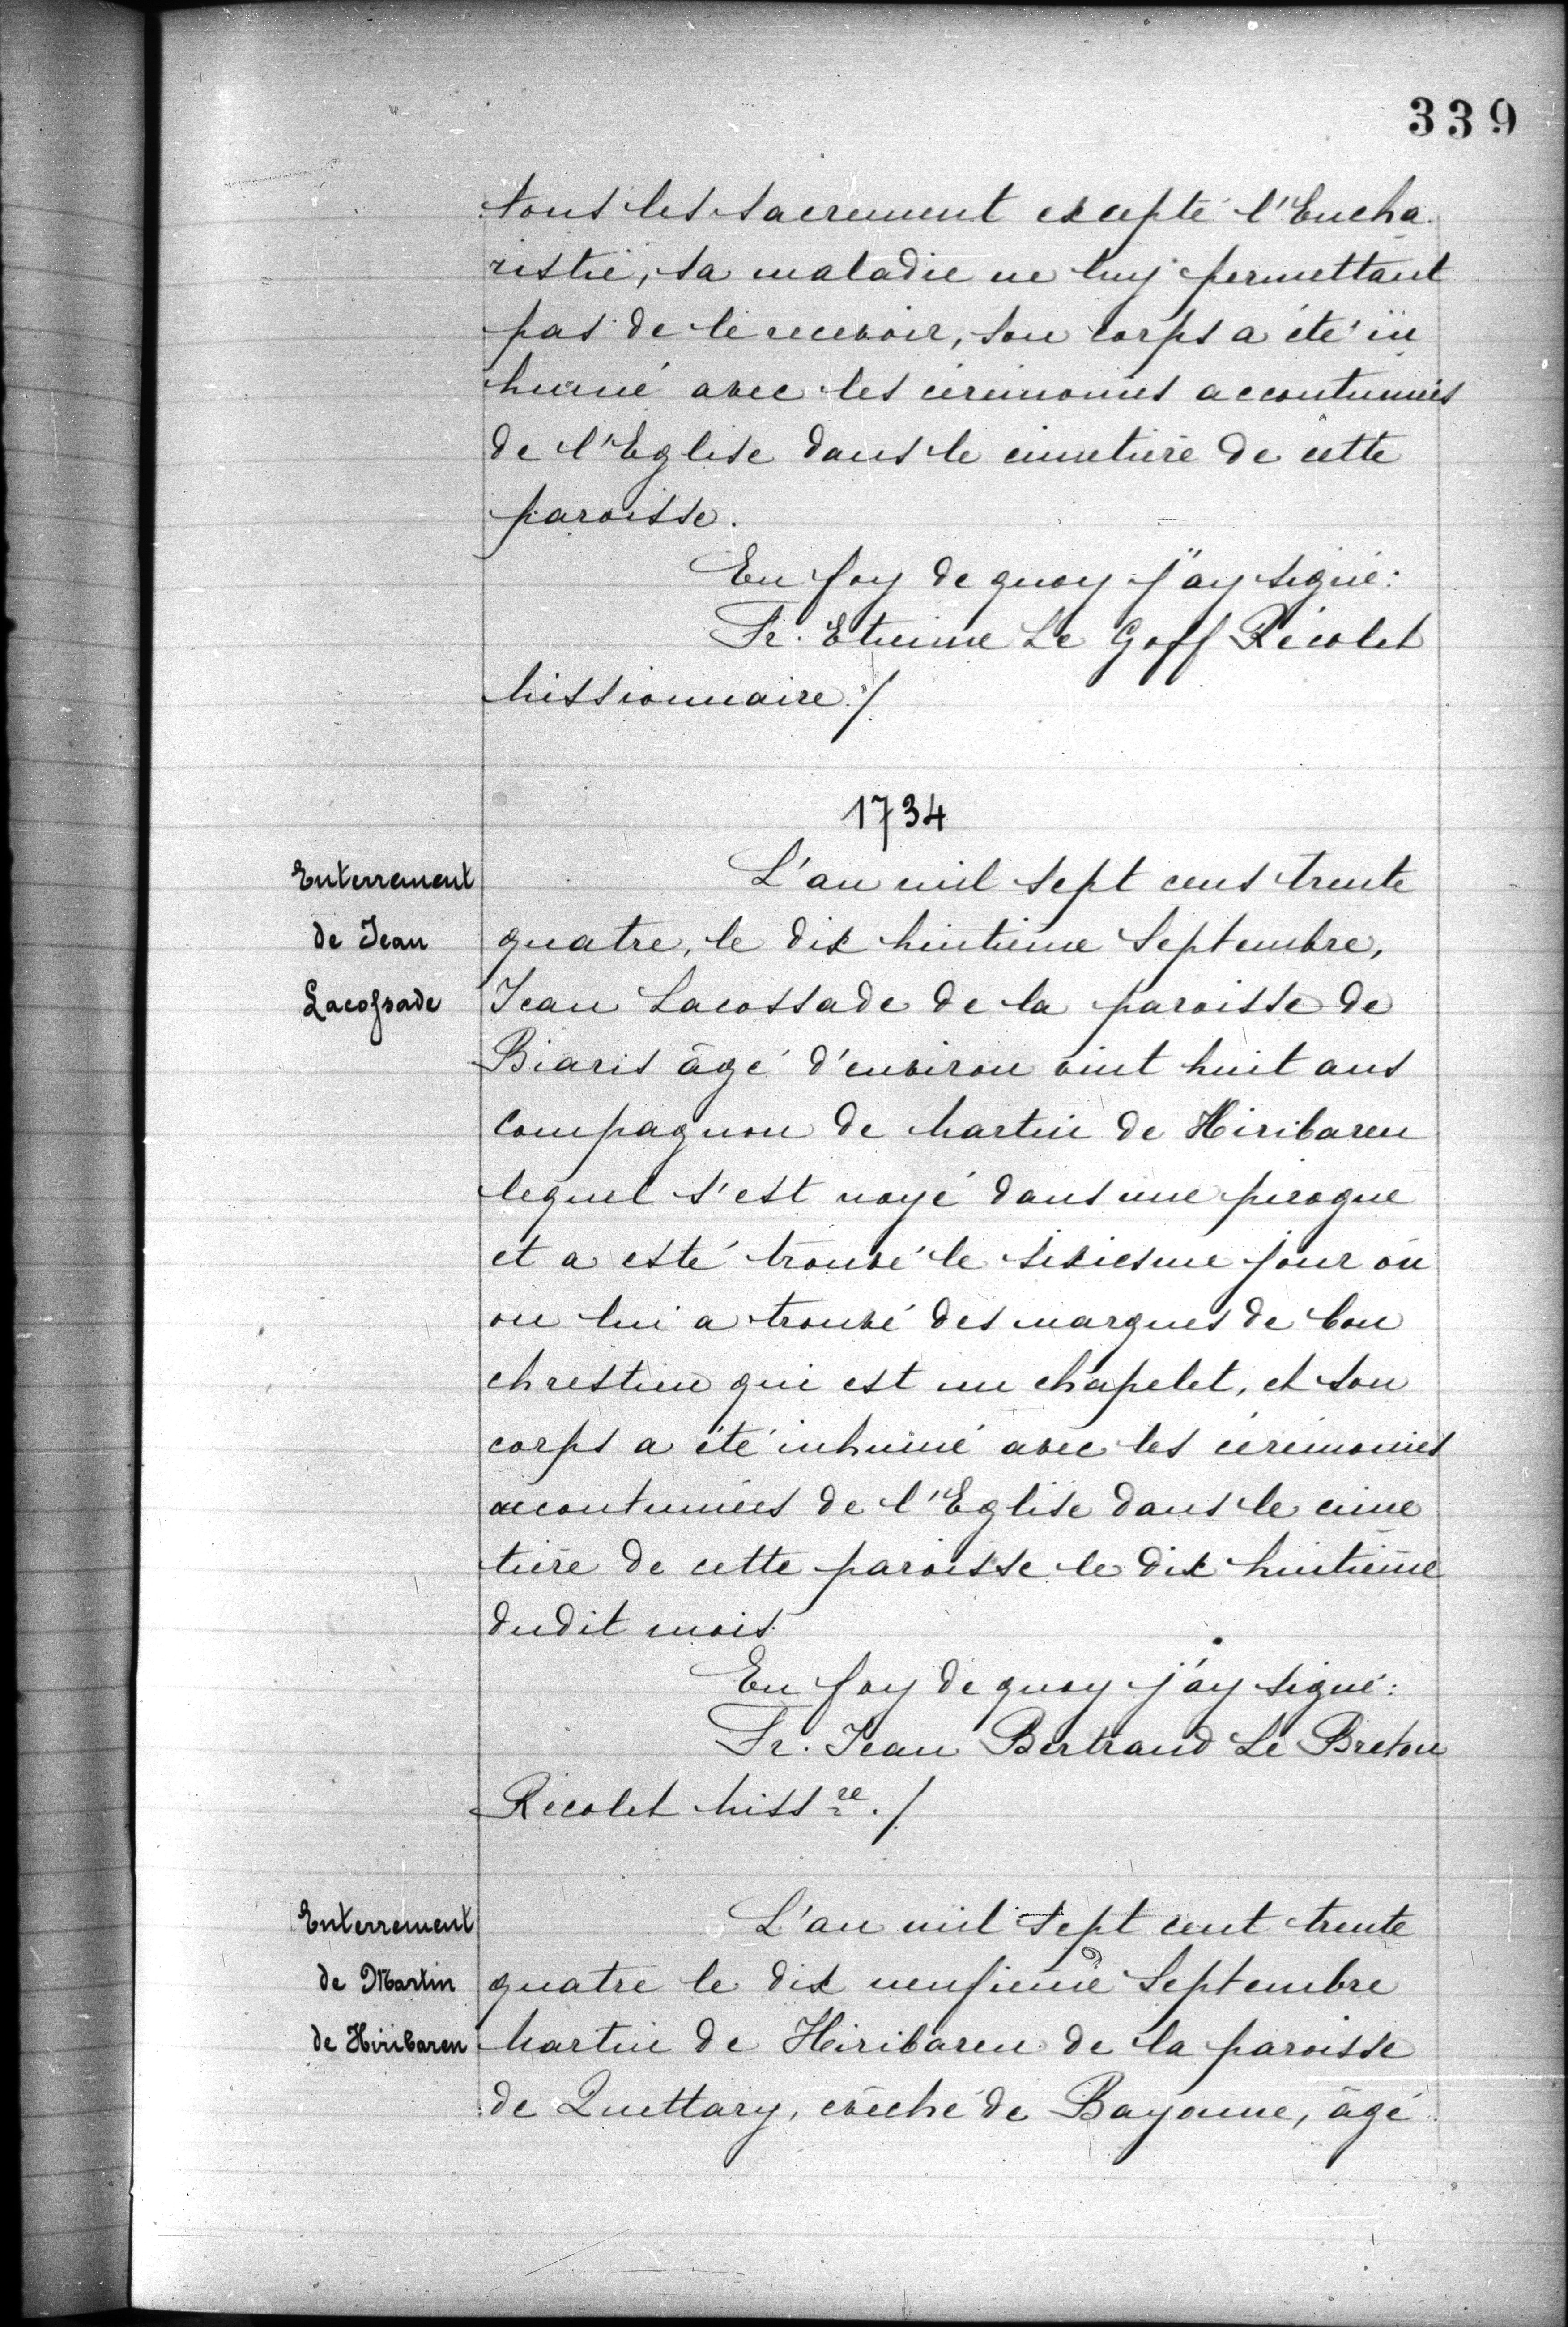 339
tous les sacrement excepté l'Eucha
ristie, sa maladie ne luy permettant
pas de le recevoir, son corps a été in
humé avec les cérémonies accoutumées
de l'Eglise dans le cimetière de cette
paroisse.
En foy de quoy j'ay signé:
Fr. Etienne Le Goff Récolet
Missionnaire./
1734
Enterrement
de Jean
Lacossade
L'an mil sept cens trente
quatre, le dix huitième Septembre,
Jean Lacossade de la paroisse de
Biaris âgé d'environ vint huit ans
compagnon de Martin de Hiribaren
lequel s'est noyé dans une pirogue
et a esté trouvé le sixiesme jour où
on lui a trouvé des marques de bon
chrestien qui est un chapelet, et son
corps a été inhumé avec les cérémonies
accoutumées de l'Eglise dans le cime
tière de cette paroisse le dix huitième
dudit mois.
En foy de quoy j'ay signé:
Fr. Jean Bertrand Le Breton
Récolet Miss re./
Enterrement
de Martin
de Hiribaren
L'an mil sept cent trente
quatre le dix neufième Septembre
Martin de Hiribaren de la paroisse
de Quettary, evêché de Bayonne, âgé